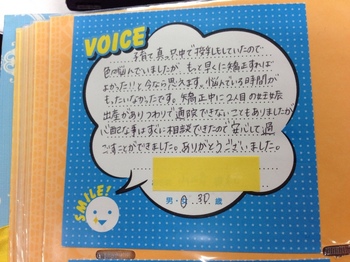 VOICE
子育て真っ只中で授乳もしていたので
色々悩んでいましたが、もっと早くに矯正すれば
よかった!!と今なら思えます。悩んでいる時間が
もったいなかったです。矯正中に2人目の妊娠
出産がありつわりで通院できないこともありましたが
心配な事はすぐに相談できたので安心して過
ごすことができました。ありがとうございました。
男・女 30 歳
SMILE!